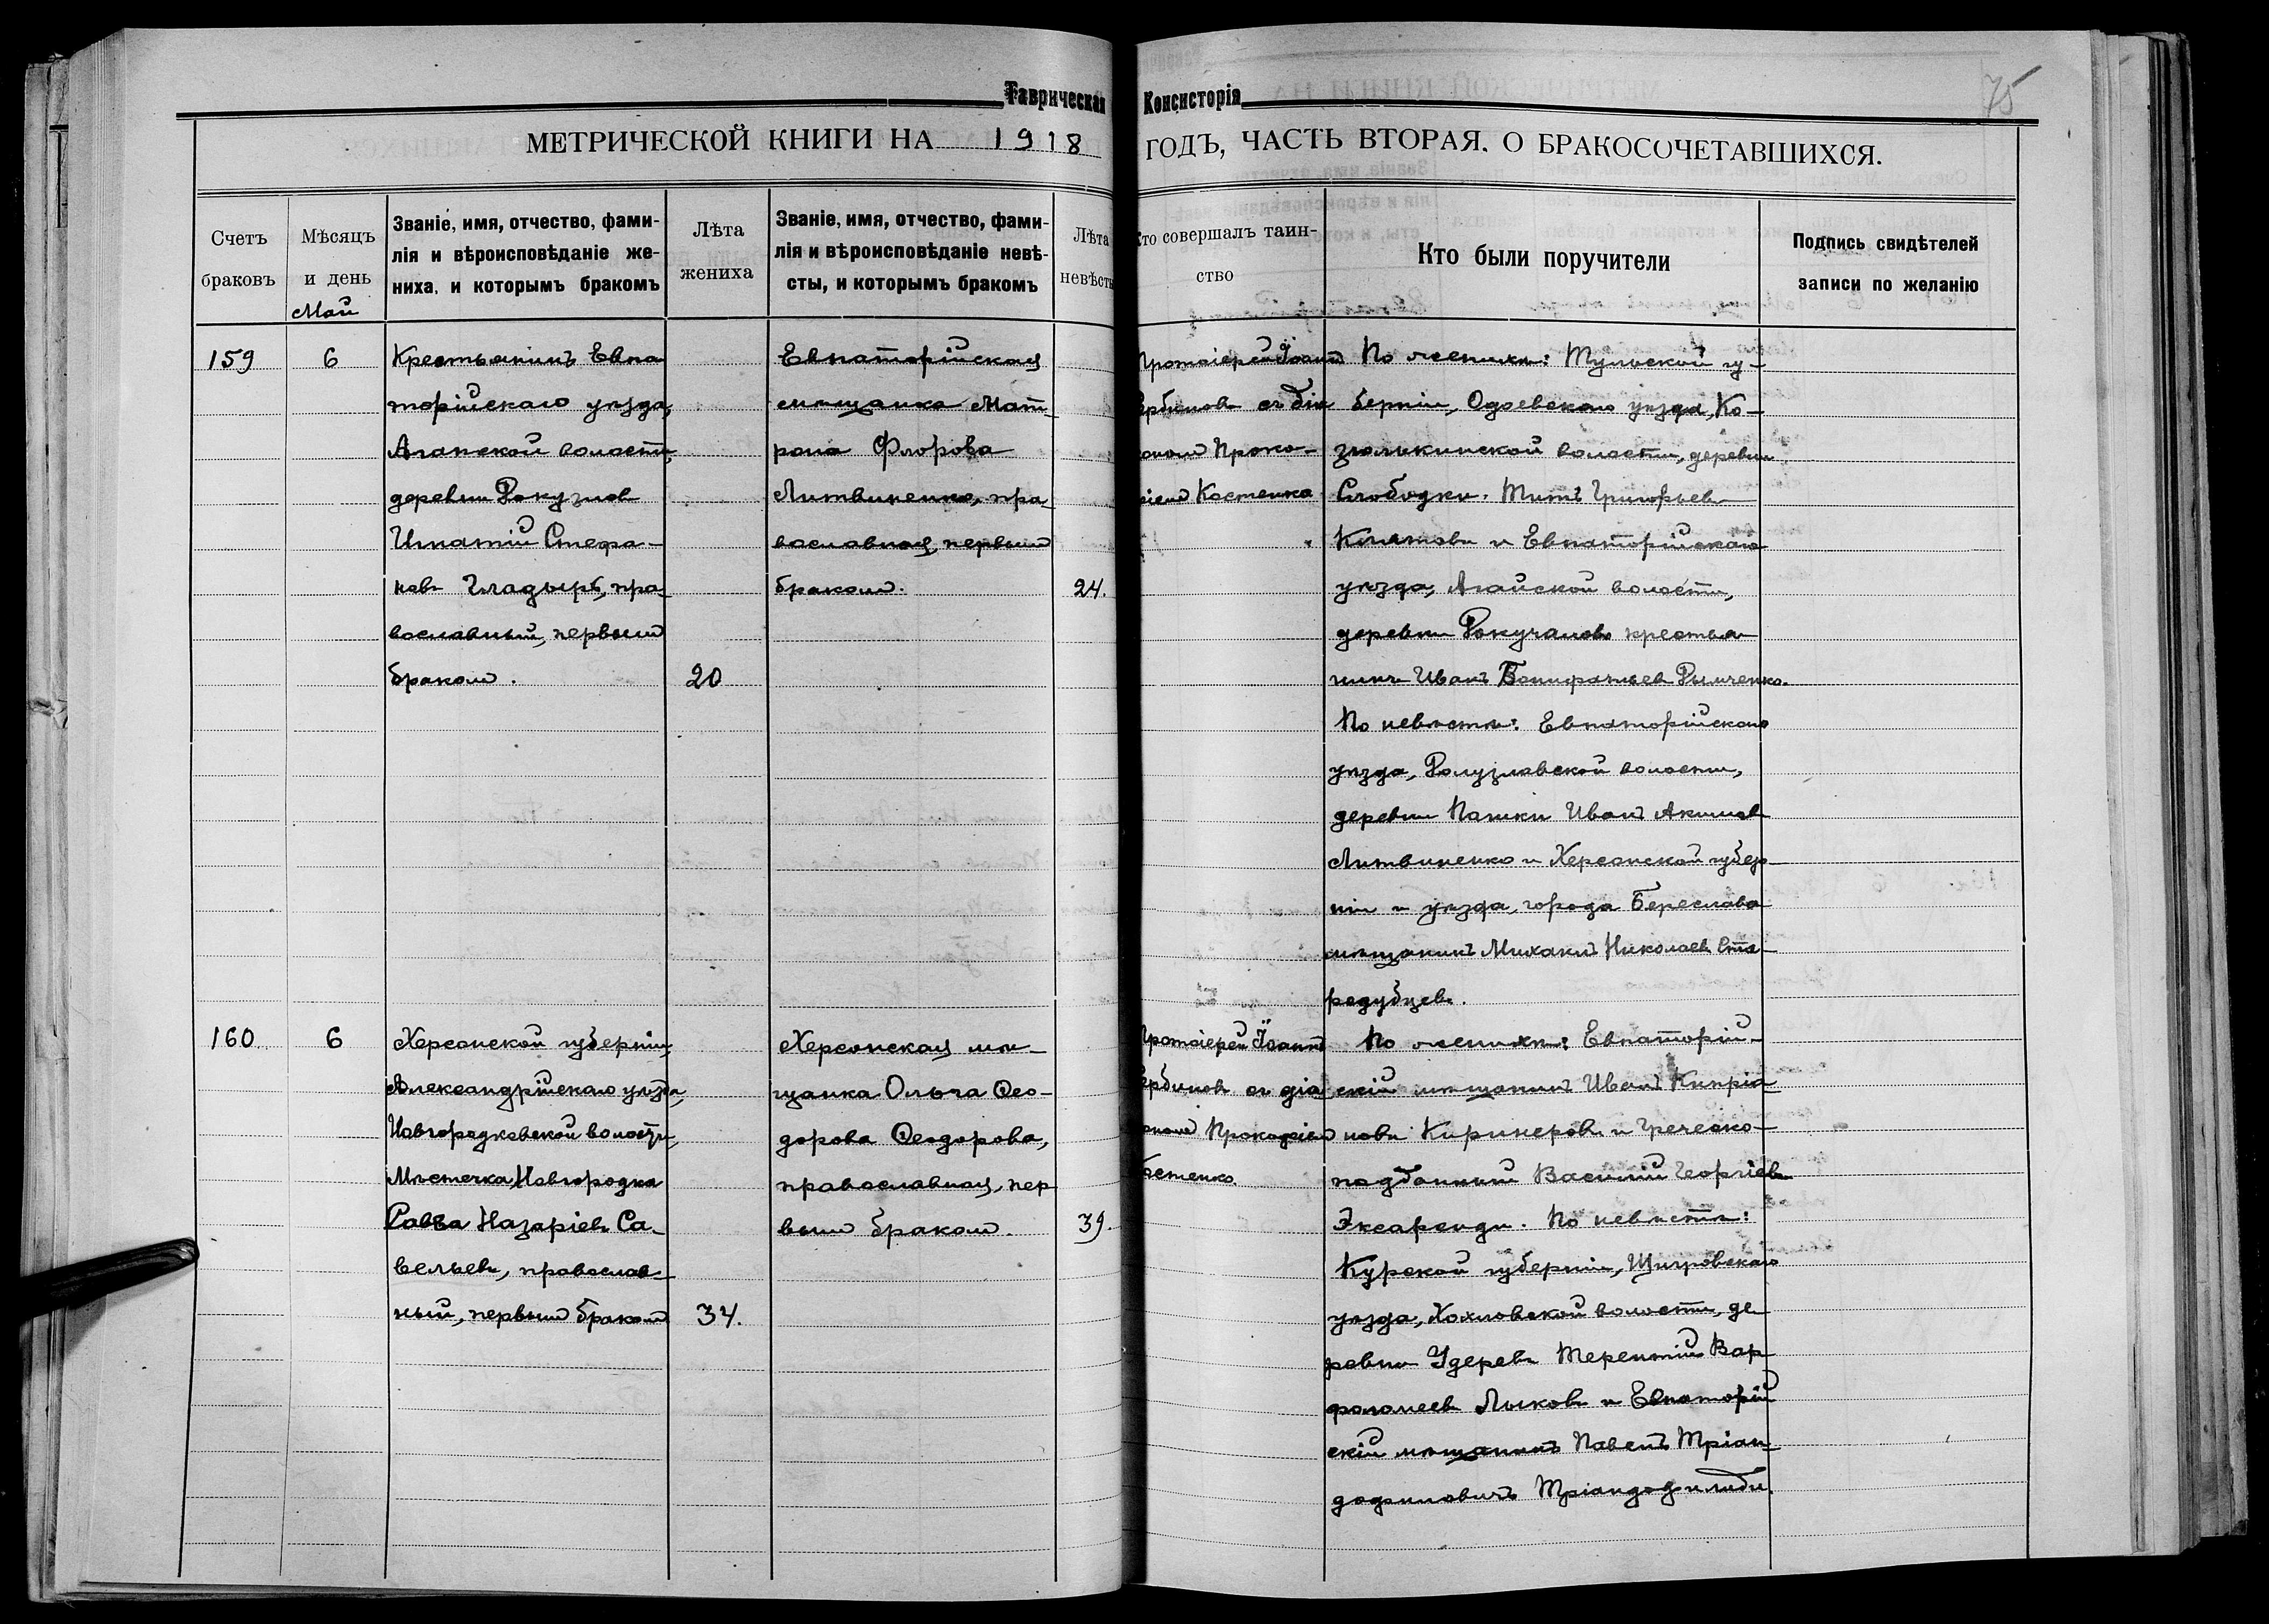 Таврическая Консисторія
75
МЕТРИЧЕСКОЙ КНИГИ НА 1918 ГОДЪ, ЧАСТЬ ВТОРАЯ. О БРАКОСОЧЕТАВШИХСЯ.
Счетъ
браковъ
Мѣсяцъ
и день
Май
Званіе, имя, отчество, фами-
лія и вѣроисповѣданіе же-
ниха, и которымъ бракомъ
Лѣта
жениха
Званіе, имя, отчество, фами-
лія и вѣроисповѣданіе невѣ-
сты, и которымъ бракомъ
Лѣта
невѣсты
Кто совершалъ таин-
ство
Кто были поручители
Подпись свидѣтелей
записи по желанію
159
6
Крестьянинъ Евпа
торійскаго уѣзда,
Агапской волости,
деревни
Игнатій Стефа-
новъ Гладырь, пра-
вославный, первымъ
бракомъ.
20
Евпаторійская
мѣщанка Мат-
рона Флорова
Литвиненко, пра-
вославная, первымъ
бракомъ.
24.
Протоіерей Іоаннъ
ербиновъ съ діа
кономъ Проко-
піемъ Костенко
По женихѣ: Тульской гу-
берніи, Одоевскаго уѣзда, Ко-
волости, деревни
Слободки. Титъ Григорьевъ
и Евпаторійскаго
уѣзда, Агайской волости,
деревни крестья
нинъ Иванъ Вонифатьевъ
По невѣстѣ: Евпаторійскаго
уѣзда, волости,
деревни Иванъ Акимовъ
Литвиненко и Херсонской губер-
ніи и уѣзда, города Береслава
мѣщанинъ Михаилъ Николаевъ Ста-
родубцевъ.
160
6
Херсонской губерніи,
Александрійскаго уѣзда,
Новгородковской волости,
Мѣстечка Новгородка
Савва Назаріевъ Са-
вельевъ, православ-
ный, первымъ бракомъ
34.
Херсонская мѣ-
щанка Ольга Ѳео-
дорова Ѳеодорова,
православная, пер
вымъ бракомъ.
39.
Протоіерей Іоаннъ
ербиновъ съ діа
кономъ Прокофіемъ
Костенко.
По женихѣ: Евпаторій-
скій мѣщанинъ Иванъ Кипріа
новъ и Греческо-
подданный Василій Георгіевъ
По невѣстѣ:
Курской губерніи, Щигровскаго
уѣзда, Хохловской волости, де
ревни Удеревъ Терентій Вар
фоломеевъ Лыковъ и Евпаторій
скій мѣщанинъ Павелъ Тріан-
дофиловичъ Тріандофилиди.